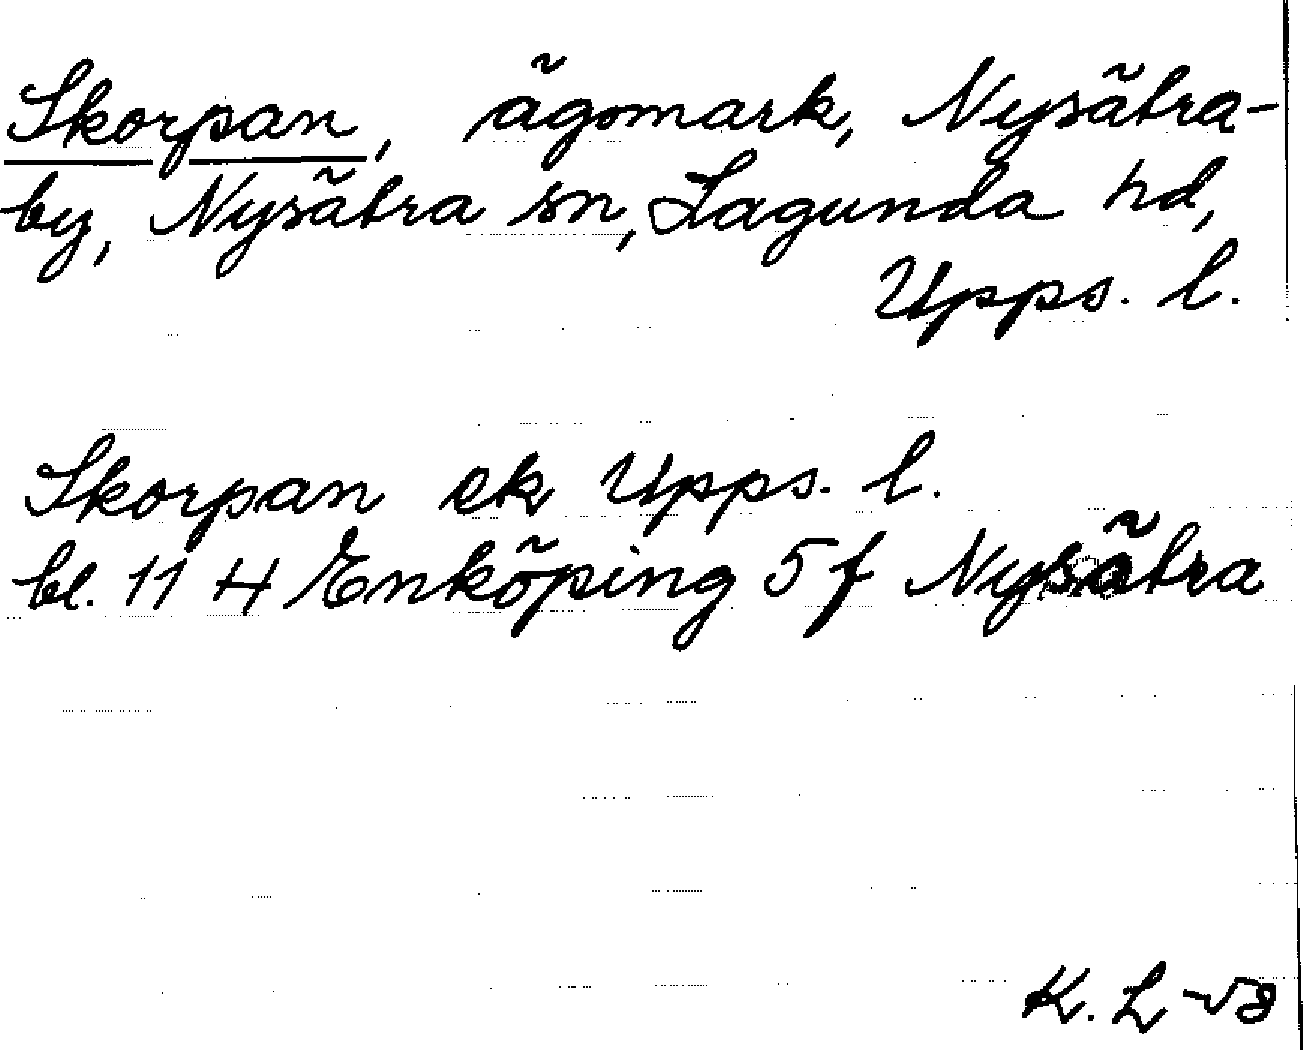 Skorpan, ägomark, Nysätra-
by, Nysätra sn, Lagunda hd,
Upps. l.
Skorpan ek Upps. l.
bl. 11 H Enköping 5 f Nysätra
K. L